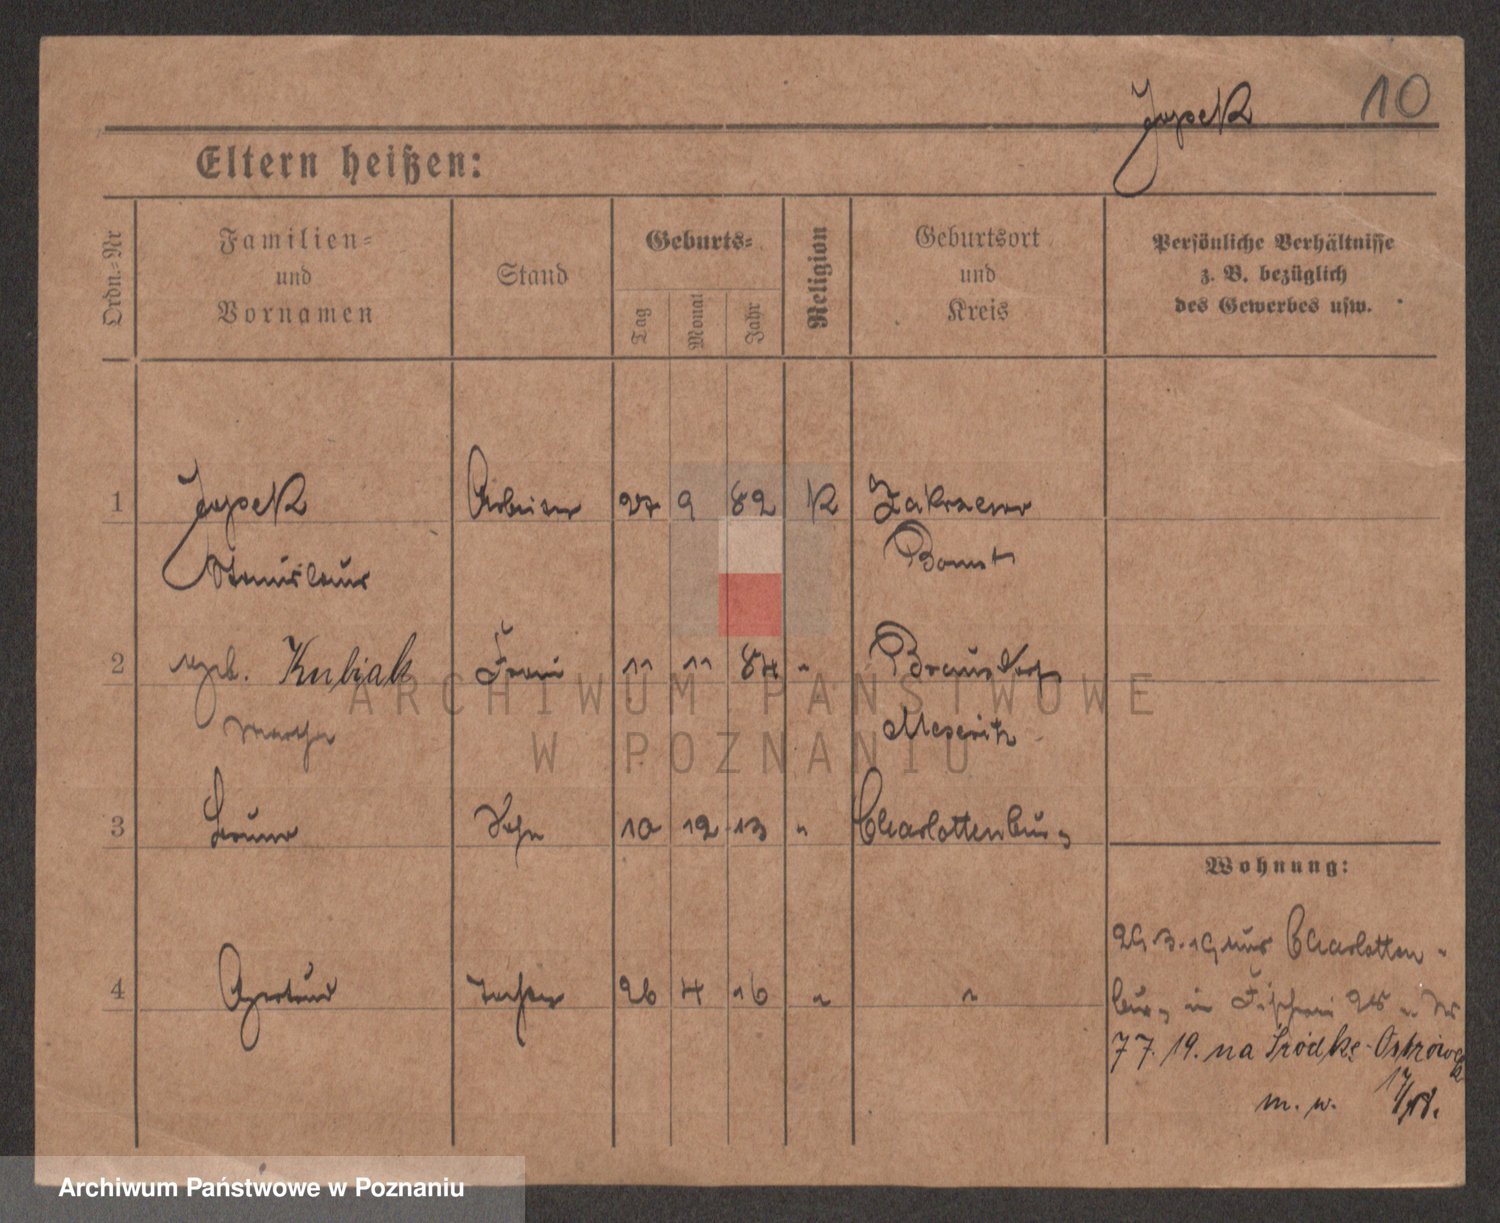 10
Jopek
Eltern heißen:
Ordn.-Nr
Familien-
und
Vornamen
Stand
Geburts-
Tag
Monat
Jahr
Religion
Geburtsort
und
Kreis
Persönliche Verhältnisse
z. B. bezüglich
des Gewerbes usw.
1 Jopek Arbeiter 27 9 82 K
Stanislaus Bomst
2 geb. Kubiak Frau 11 11 84 "
Martha Meseritz
3 Bruno Sohn 10 12 13 " Charlottenburg
Wohnung:
4 Gertrud Tochter 26 4 16 " "
29.3.19 aus Charlotten-
burg in Fischerei
7 7. 19. na Śródkę-Ostrówek
m. w. 17/
ARCHIWUM PAŃSTWOWE
W POZNANIU
Archiwum Państwowe w Poznaniu